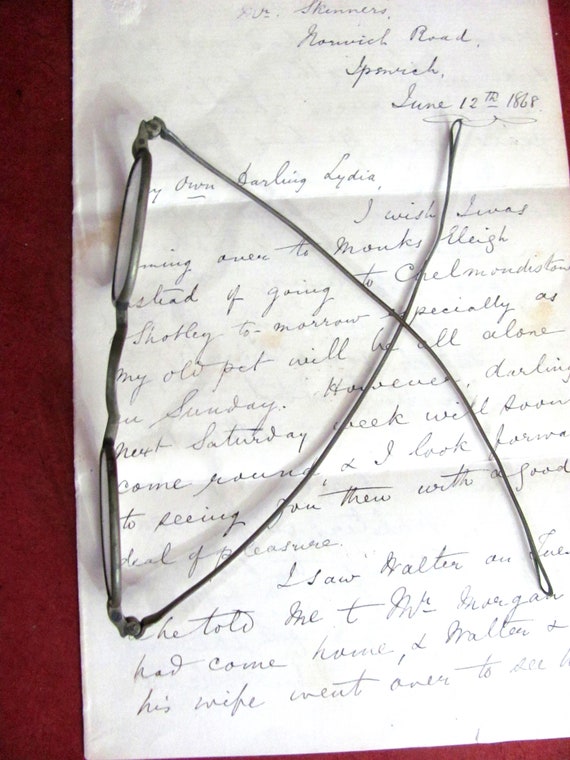 Mr. Skinners,
Norwich Road,
Ipswich,
June 12th 1868.
My Own Darling Lydia,
I wish I was
ming over to Monks Eleigh
nstead of going to Chelmondiston
Shotley to-morrow especially as
my old pet will be all alone
on Sunday. However, darling
next Saturday week will soon
come round, & I look forwa
to seeing you then with a good
deal of pleasure.
I saw Walter on Tue
he told me & Mr. Morgan
had come home, & Walter &
his wife went over to see h